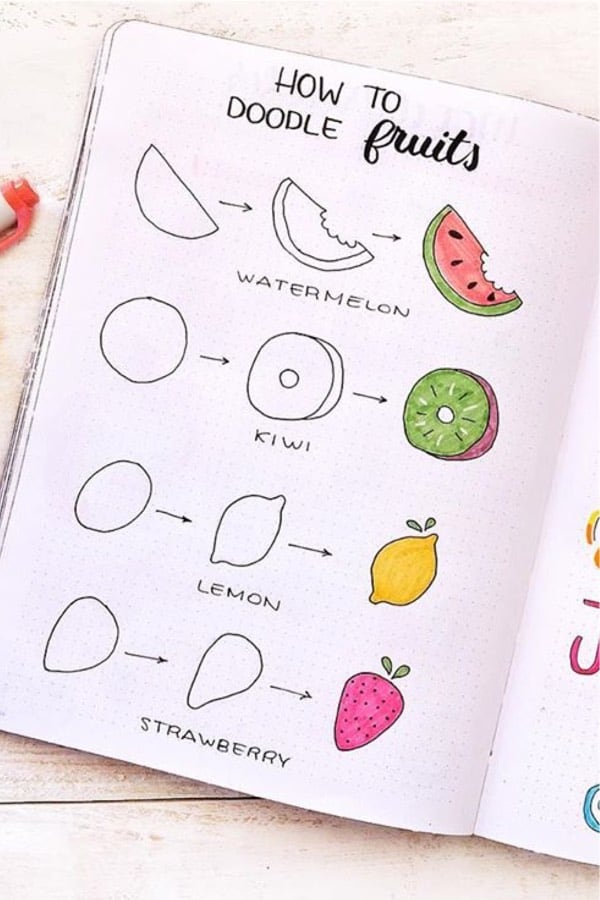 HOW TO
DOODLE fruits
WATERMELON
KIWI
LEMON
STRAWBERRY